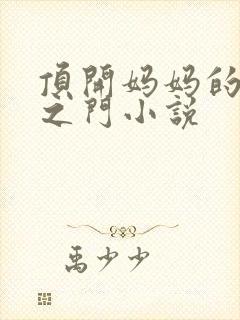 頂開妈妈的
之门小説
禹少少